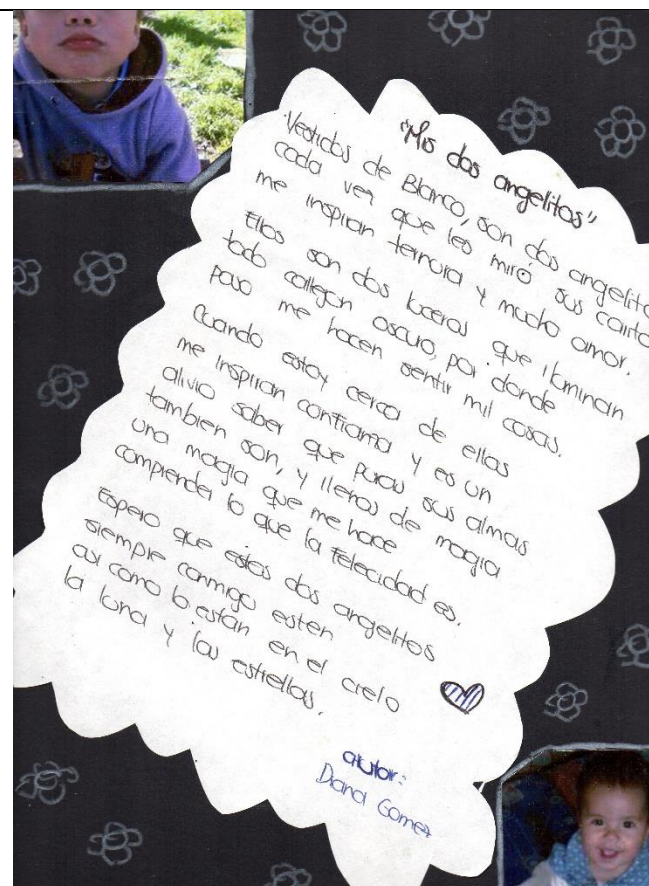 "Mis dos angelitos"
"Vestidos de Blanco, son dos angelito
cada vez que les miró sus carita
me inspiran ternura y mucho amor.
Ellos son dos luceros que iluminan
todo callejon oscuro, por donde
paso me hacen sentir mil cosas.
Cuando estoy cerca de ellas
me inspiran confianza y es un
alivio saber que puras sus almas
tambien son, y llenas de magia
una magia que me hace
comprender lo que la felecidad es.
Espero que estos dos angelitos
siempre conmigo esten
asi como lo están en el cielo
la luna y las estrellas.
autor:
Diana Gomez